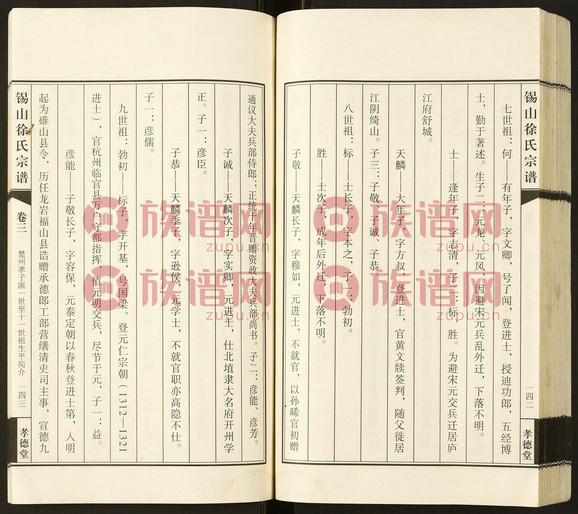 锡山徐氏宗谱
四二
七世祖：何——有年子，字文卿，号了闻，登进士，授迪功郎，五经博
士，勤于著述。生子二：元龙、元凤，因避宋元兵乱外迁，下落不明。
士——逢年子，字志清，子二：标、胜。为避宋元交兵迁居庐
江府舒城。
天麟 大年子，字方叔，登进士，官黄文牍签判，随父徙居
江阴绮山。子三：子敬、子诚、子恭。
八世祖：标——士长子，字本之，子一：勃初。
胜——士次子，成年后外迁，下落不明。
子敬 天麟长子，字穆如，元进士，不就官，以孙晞官初赠
通议大夫兵部侍郎；正统十年晋赠资政大夫兵部尚书。子二：彦能、彦芳。
子诚 天麟次子，字实卿，元进士，仕北埴隶大名府开州学
正。子一：彦臣。
子恭 天麟季子，字逊侯，元学士，不就官职亦高隐不仕。
子一：彦儒。
九世祖：勃初——标子，字开基，号国梁，登元仁宗朝（1312—1321
进士），官杭州临官县万户守都指挥，值元明交兵，尽节于元，子一：益。
彦能 子敬长子，字容保，元泰定朝以春秋登进士第，入明
起为碓山县令，历任龙岩福山县诰赠承德郎工部营缮清吏司主事，宣德九
锡山徐氏宗谱
卷三
楚州孝子派一世至十一世祖生平简介
一四三
孝德堂
族谱网
zupu.cn
族谱网
zupu.cn